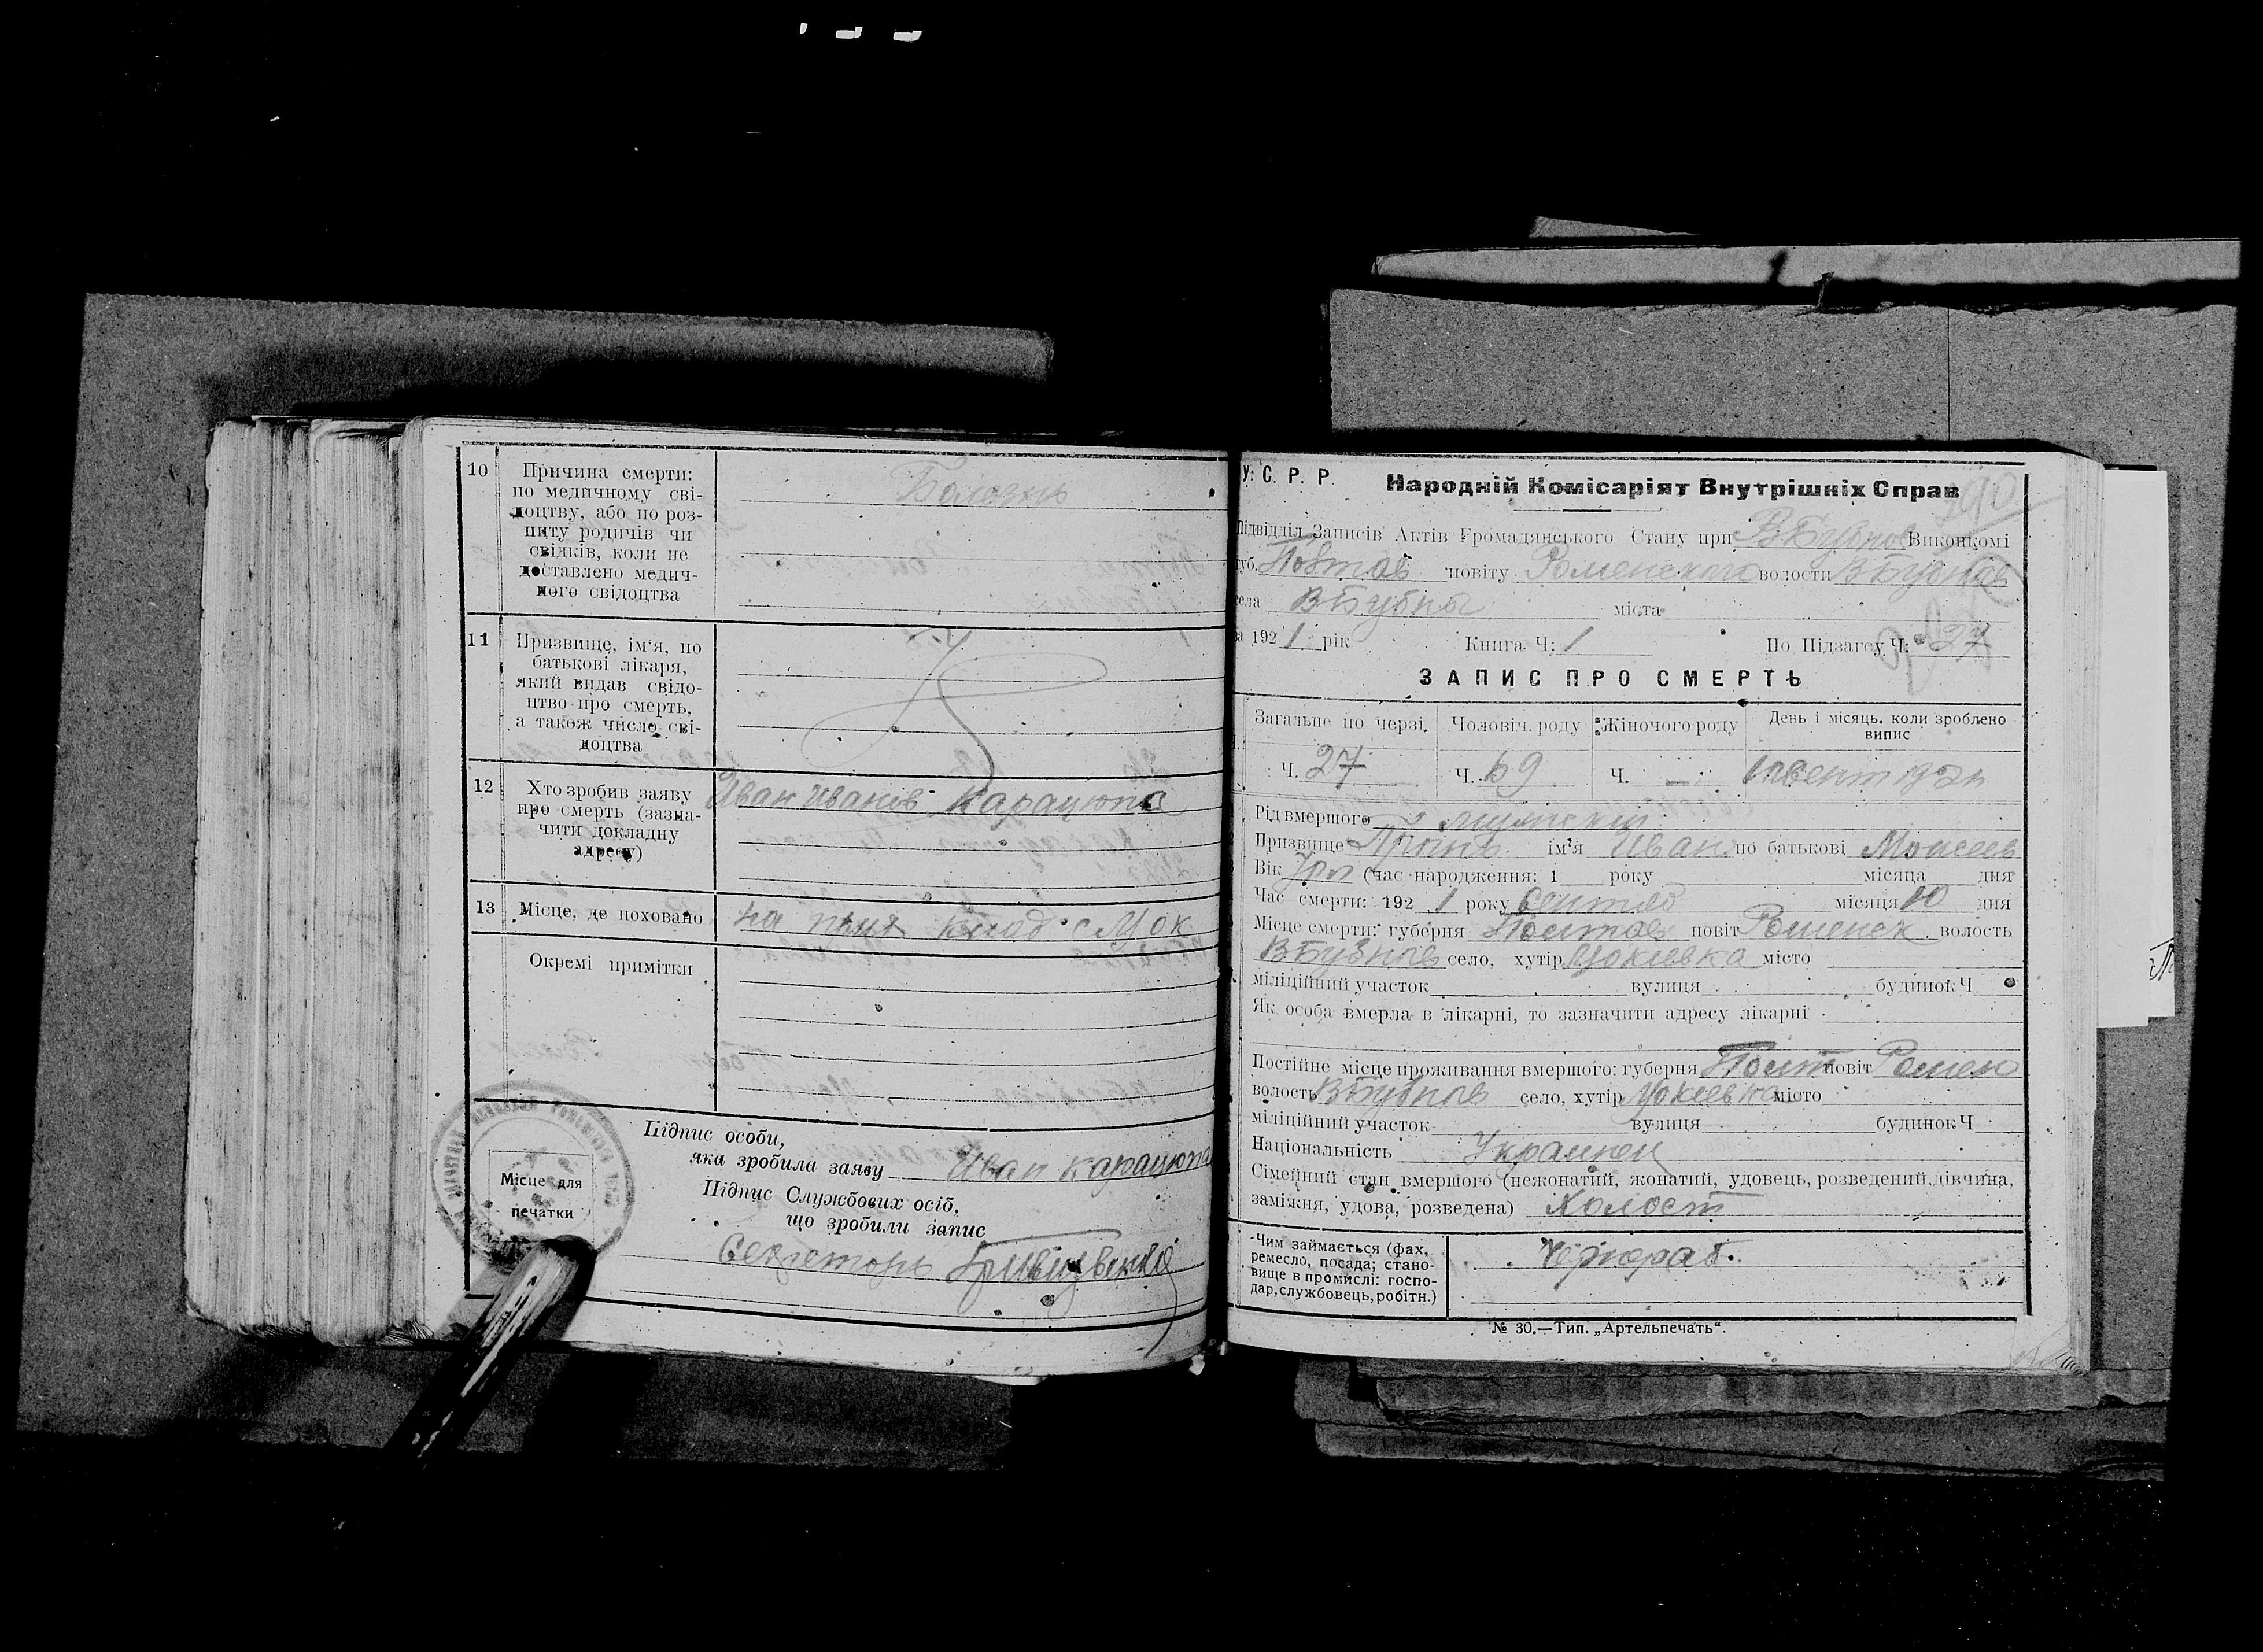 10 Причина смерти: Болезнь
по медичному сві-
доцтву, або по роз-
питу родичів чи
свідків, коли не
доставлено медич-
ного свідоцтва
11 Призвище, ім'я, по
батькові лікаря,
який видав свідо-
цтво про смерть,
а також число сві-
доцтва
12 Хто зробив заяву Иван Иванов Карацюпа
про смерть (зазна-
чити докладну
адресу)
13 Місце, де поховано на клад. с
Окремі примітки
Місце для
печатки
Підпис особи,
яка зробила заяву Иван Карацюпа
Підпис Службових осіб,
що зробили запис
Секретарь
У. С. Р. Р. Народній Комісаріят Внутрішніх Справ
Підвідділ Записів Актів Громадянського Стану при ВБубнов Виконкомі
губ. Полтав повіту Роменского волости ВБубнов
села ВБубны міста
за 1921 рік Книга Ч: 1 По Підзагсу Ч: 27
ЗАПИС ПРО СМЕРТЬ
Загальне по черзі Чоловіч. роду Жіночого роду День і місяць, коли зроблено
випис
Ч. 27 Ч. Ч. —
Рід вмершого мужской
Призвище ім'я Иван по батькові Моисеев
Вік 70 л (час народження: 1 року місяця дня
Час смерти: 1921 року сентяб місяця 10 дня
Місце смерти: губерня Полтав повіт Роменск волость
ВБубнов село, хутір місто
міліційний участок вулиця будинок Ч
Як особа вмерла в лікарні, то зазначити адресу лікарні
Постійне місце проживання вмершого: губерня Полт повіт Ромен
волость ВБубнов село, хутір місто
міліційний участок вулиця будинок Ч
Національність Украинец
Сімейний стан вмершого (нежонатий, жонатий, удовець, розведений, дівчина,
заміжня, удова, розведена) Холост
Чим займається (фах, Чернораб.
ремесло, посада; стано-
вище в промислі: госпо-
дар, службовець, робітн.)
№ 30.—Тип. „Артельпечать“.